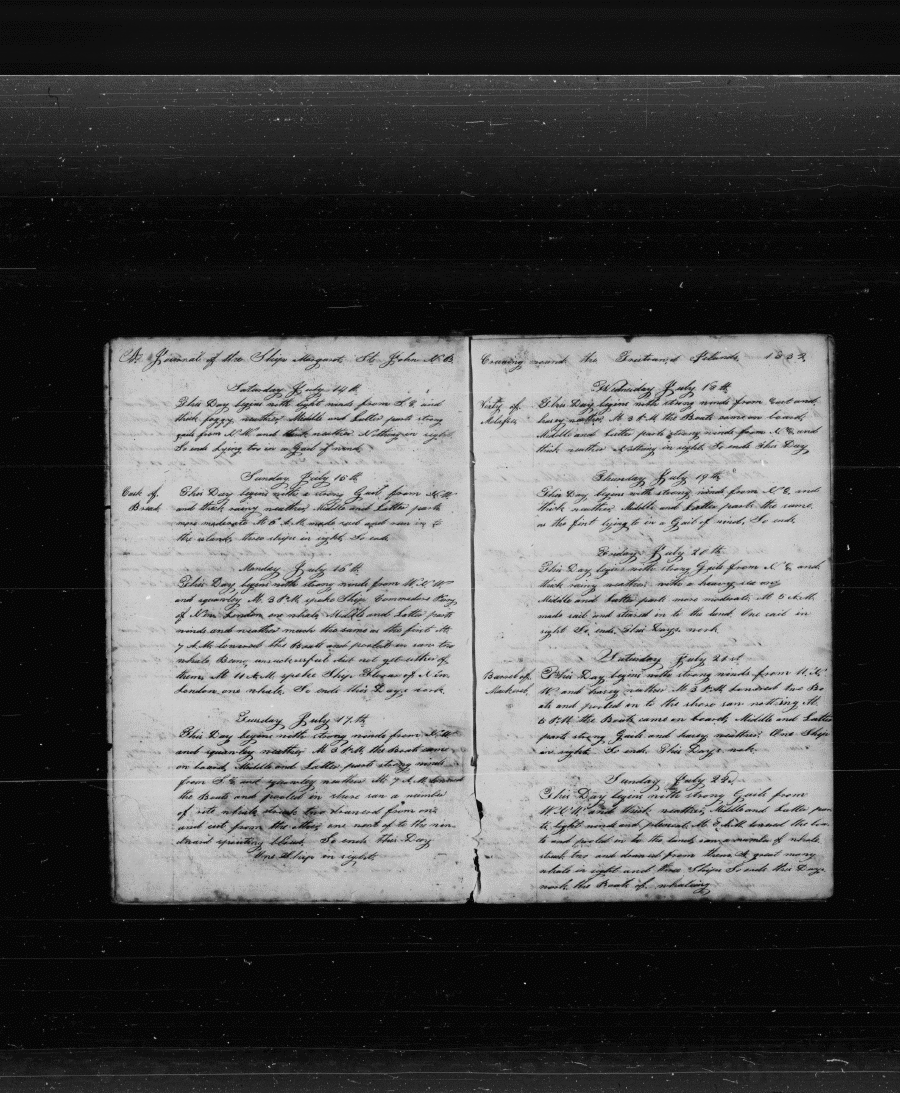 A Journal of the Ship Margaret St John N.B.
Saturday July 14th
This Day begins with light winds from S.E. and
thick foggy weather, Middle and Latter parts strong
gale from N.W. and thick weather Nothing in sight
So ends lying too in a Gail of wind
Sunday July 15th
Cask of
Bread
This Day begins with a strong Gail from N.W.
and thick rainy weather, Middle and Latter parts
more moderate At 6 A.M. made sail and ran in to
the island, three ships in sight, So ends
Monday July 16th
This Day begins with strong winds from W.N.W
and squawley At 3 P.M. spoke Ship Commodore Perry
of New London one whale, Middle and Latter parts
winds and weather much the same as the first At
7 A.M. lowered the Boats and pooled in saw two
whails Being unsuccessful did not get either of
them, At 11 A.M. spoke Ship of New
London one whale. So ends this Days work
Tuesday July 17th
This Day begins with strong winds from N.W
and squawley weather, At 3 P.M. the Boats came
on board, Middle and Latter parts strong winds
from S.E. and squawley weather At 7 A.M. lowered
the Boats and pooled in shore saw a number
of whals struck two drawed from one
and cut from the other, one went of to the win
dward spouting blood. So ends This Day
One Ship in sight,
Cruising round the Islands, 1832
Wednesday July 18th
This Day begins with strong winds from East and
hazey weather, At 3 P.M. the Boats came on board,
Middle and Latter parts strong winds from N.E. and
thick weather Nothing in sight, So ends This Day,
of
Molasses
Thursday July 19th
This Day begins with strong winds from N.E. and
thick weather Middle and Latter parts the same
as the first lying to in a Gail of wind, So ends
Friday July 20th
This Day begins with strong Gails from N.E. and
thick rainy weather, with a heavy sea
Middle and Latter parts more moderate, At 6 A.M.
made sail and stood in to the land, One sail in
sight So ends This Days work
Saturday July 21st
Barrel of
This Day begins with strong winds from W.N.
W. and hazey weather At 3 P.M. lowered two Bo
ats and pooled in to the shore saw nothing At
6 P.M. the Boats came on board, Middle and Latter
parts strong Gails and hazey weather, One Ship
in sight. So ends This Days work.
Sunday July 22d
This Day begins with strong Gails from
W.N.W. and thick weather, Middle and Latter par
ts light winds and pleasant, At lowered the boa
ts and pooled in to the land, saw a number of whals
struck two and drawed from them, A great many
whals in sight and three Ships So ends this Days
work the Boats of whaling